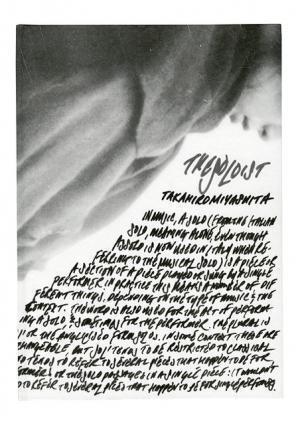 THE SOLOIST
TAKAHIROMIYASHITA
IN MUSIC, A SOLO (FROM THE ITALIAN
SOLO, MEANING ALONE, EVEN THOUGH
A SOLO IS NOW USED IN ITALY WHEN RE-
FERRING TO THE MUSICAL SOLO) IS A PIECE OR
A SECTION OF A PIECE PLAYED OR SUNG BY A SINGLE
PERFORMER. IN PRACTICE THIS MEANS A NUMBER OF DIF
FERENT THINGS, DEPENDING ON THE TYPE OF MUSIC & THE
CONTEXT. THE WORD IS ALSO USED FOR THE ACT OF PERFORM
ING A SOLO, & SOMETIMES FOR THE PERFORMER. THE PLURAL IS
OR THE ANGLICISED FORM SOLOS. IN SOME CONTEXT THEY ARE
CHANGEABLE, BUT SOLI TENDS TO BE RESTRICTED TO CLASSICAL
TO REFER TO SEVERAL PIECES THAT HAPPEN TO BE FOR
OR THE SOLO PASSAGES IN A SINGLE PIECE: IT WOULDN'T
TO REFER TO SEVERAL PIECES THAT HAPPEN TO BE FOR SINGLE PERFORMERS.